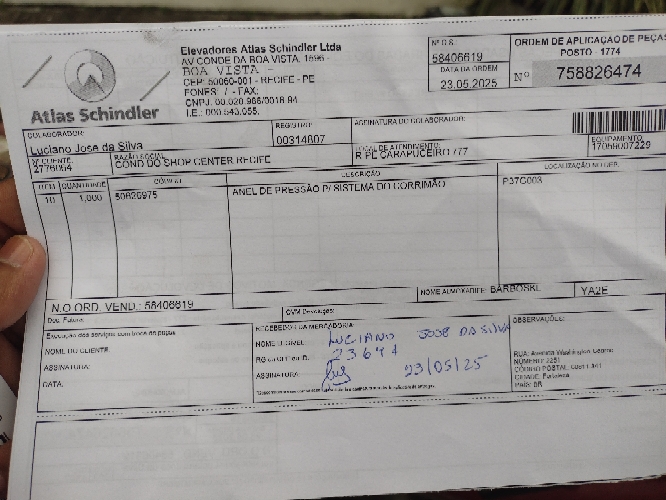 Elevadores Atlas Schindler Ltda
AV CONDE DA BOA VISTA, 1596 -
BOA VISTA -
CEP: 50060-001 - RECIFE - PE
FONES: / - FAX:
CNPJ: 00.028.986/0018.94
I.E.: 000.543.055.
Atlas Schindler
Nº O.S.:
58406619
DATA DA ORDEM
23.05.2025
ORDEM DE APLICAÇÃO DE PEÇAS
POSTO - 1774
Nº 758826474
COLABORADOR:
Luciano Jose da Silva
REGISTRO:
00314807
ASSINATURA DO COLABORADOR:
EQUIPAMENTO
Nº CLIENTE:
2776064
RAZÃO SOCIAL:
COND DO SHOP CENTER RECIFE
LOCAL DE ATENDIMENTO:
R PE CARAPUCEIRO 777
ITEM QUANTIDADE CÓDIGO DESCRIÇÃO LOCALIZAÇÃO NO DEP.
10 1,000 50626975 ANEL DE PRESSÃO P/ SISTEMA DO CORRIMÃO P37G003
NOME ALMOXARIFE: YA2E
N.O ORD. VEND.: 58406619
Doc. Fatura:
GVM Devolução:
Execução dos serviços com troca de peças
NOME DO CLIENTE:
ASSINATURA:
DATA:
RECEBEDOR DA MERCADORIA:
NOME LEGÍVEL: LUCIANO JOSE DA SILVA
RG ou CPF ou D.
ASSINATURA: 23/05/25
OBSERVAÇÕES:
RUA: Avenida Washington Soares
CIDADE: Fortaleza
PAÍS: BR